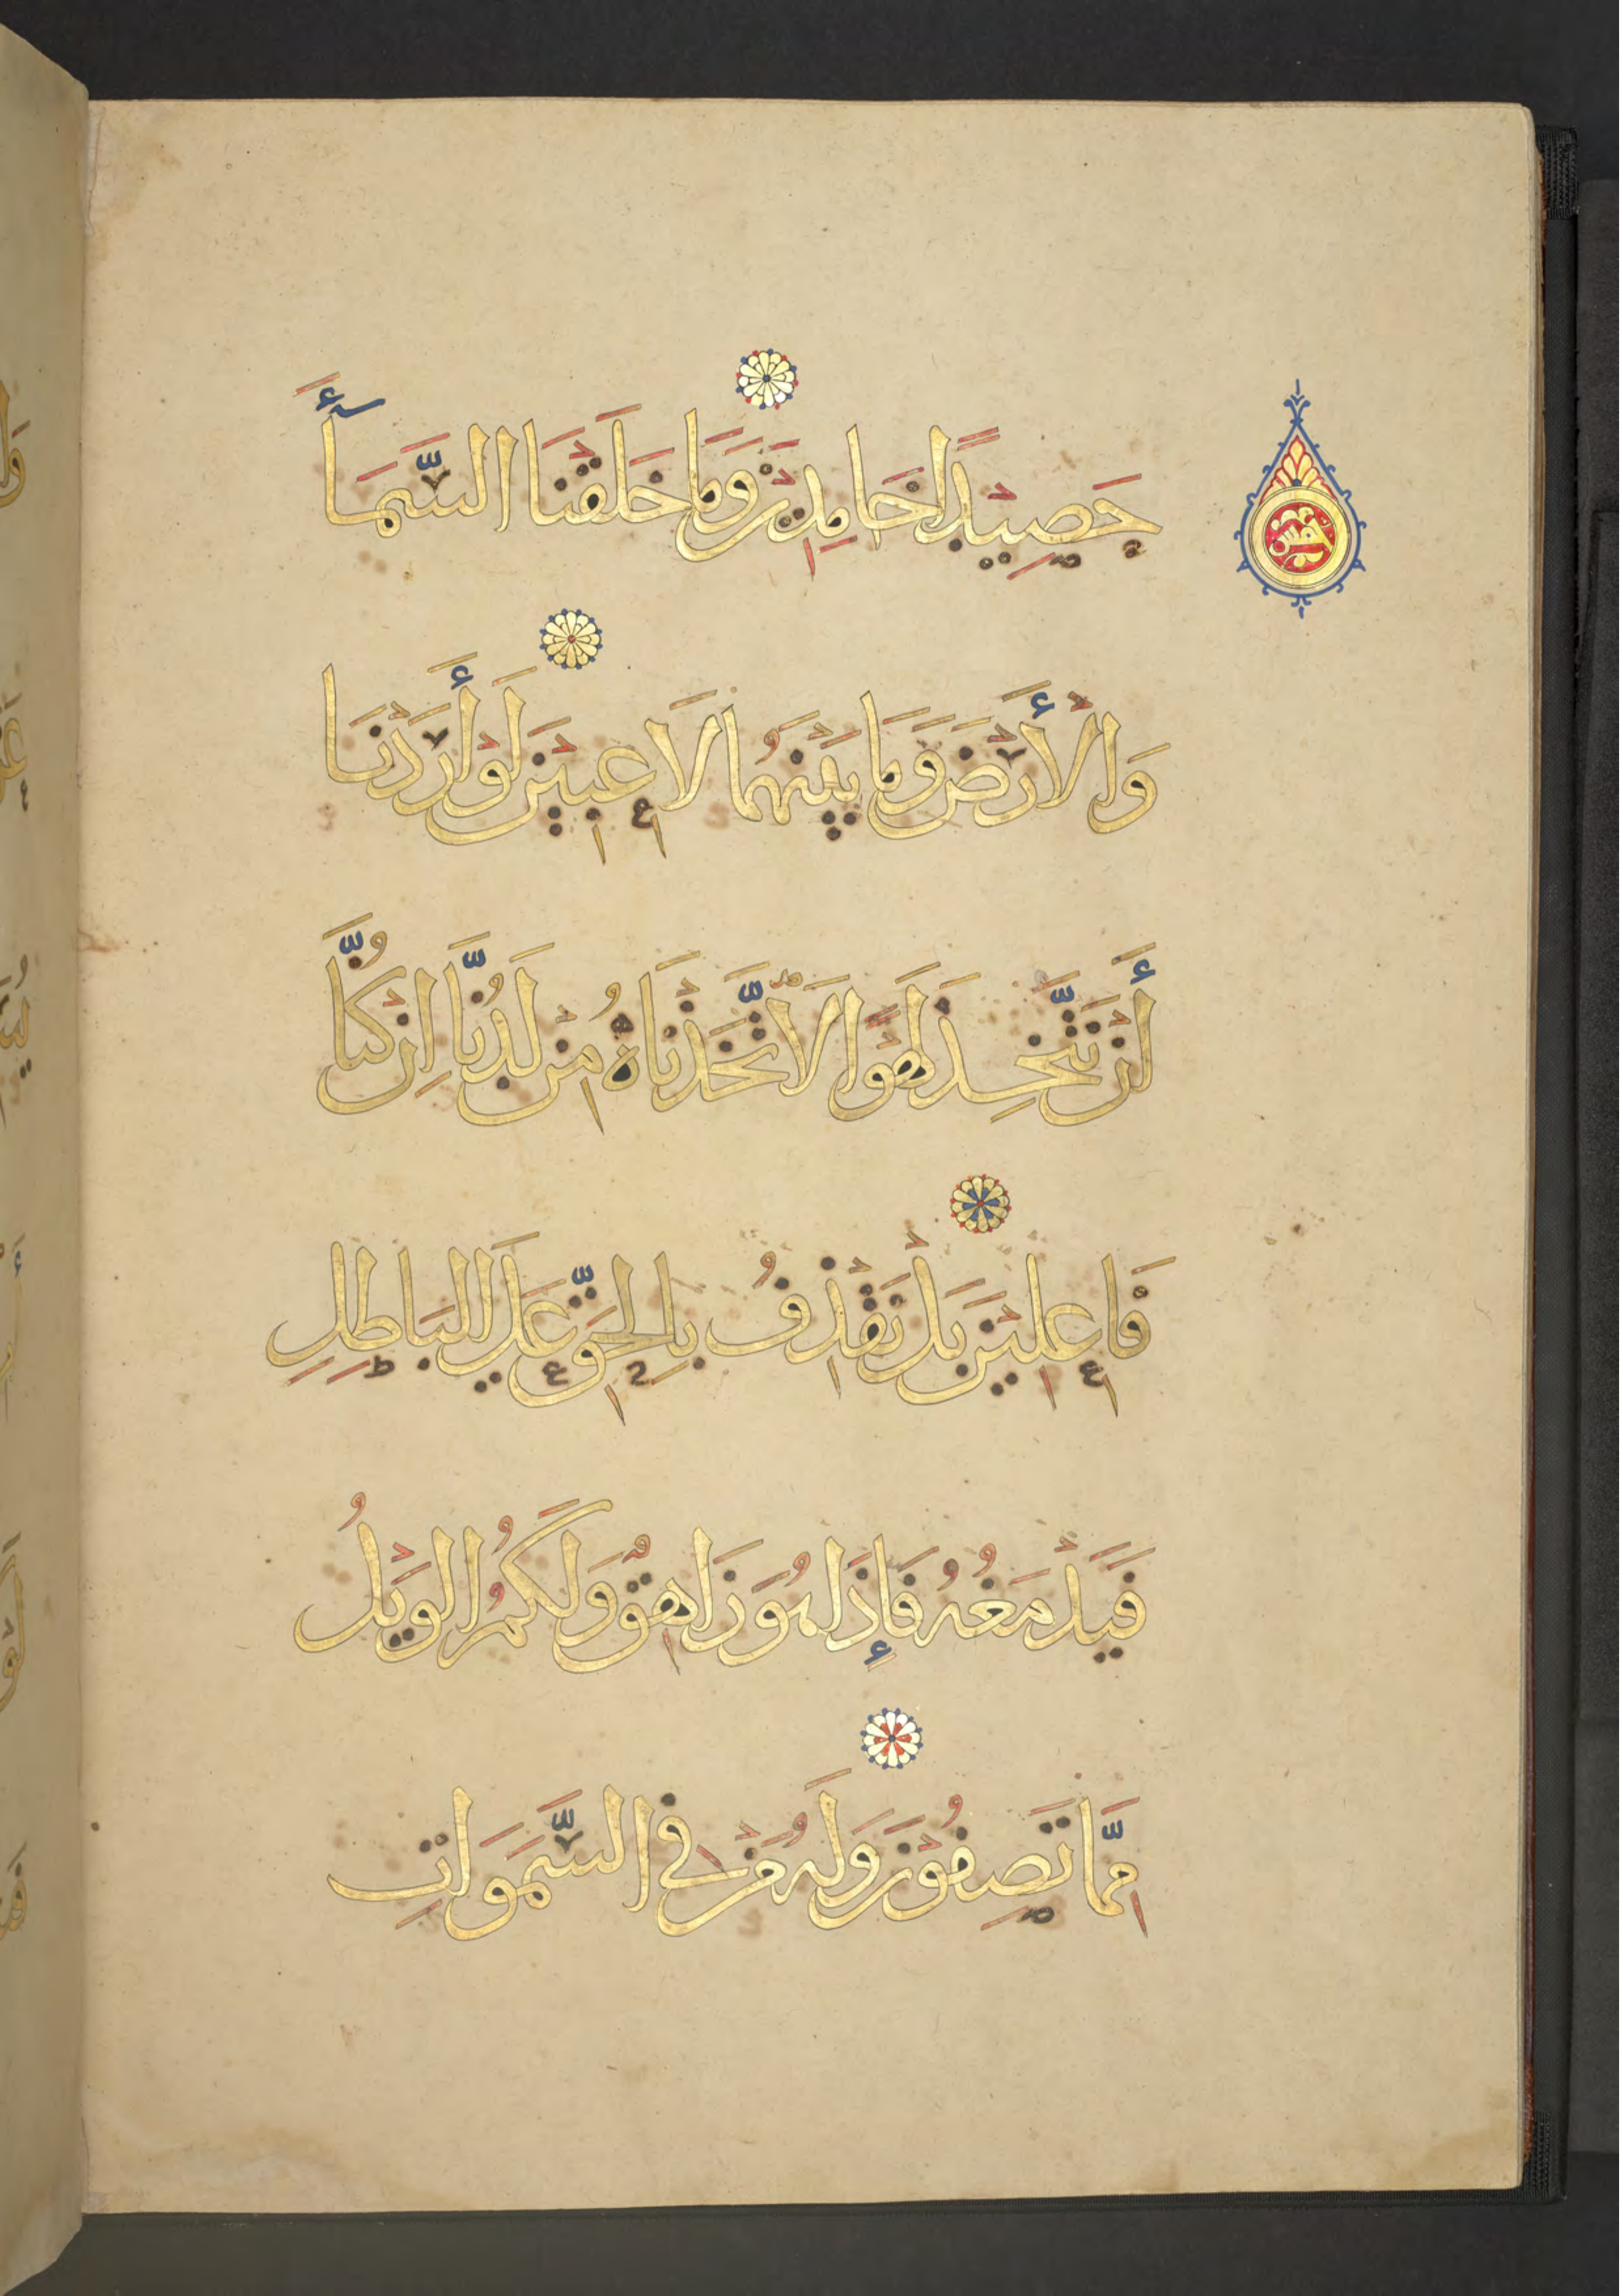 حَصِيدًا خَامِدِينَ وَمَا خَلَقْنَا السَّمَآءَ
وَالْأَرْضَ وَمَا بَيْنَهُمَا لَاعِبِينَ لَوْ أَرَدْنَا
أَنْ نَتَّخِذَ لَهْوًا لَاتَّخَذْنَاهُ مِنْ لَدُنَّا إِنْ كُنَّا
فَاعِلِينَ بَلْ نَقْذِفُ بِالْحَقِّ عَلَى الْبَاطِلِ
فَيَدْمَغُهُ فَإِذَا هُوَ زَاهِقٌ وَلَكُمُ الْوَيْلُ
مِمَّا تَصِفُونَ وَلَهُ مَنْ فِي السَّمَوَاتِ